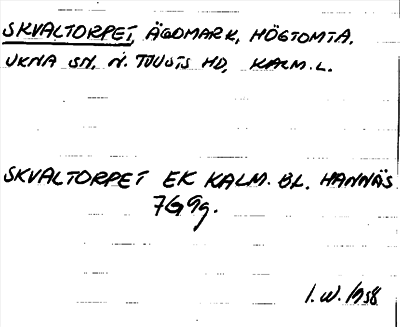 SKVALTORPET, ÄGOMARK, HÖGTOMTA,
UKNA SN, N. TJUSTS HD, KALM. L.
SKVALTORPET EK KALM. BL. HANNÄS
7G9g.
I.W. 1958